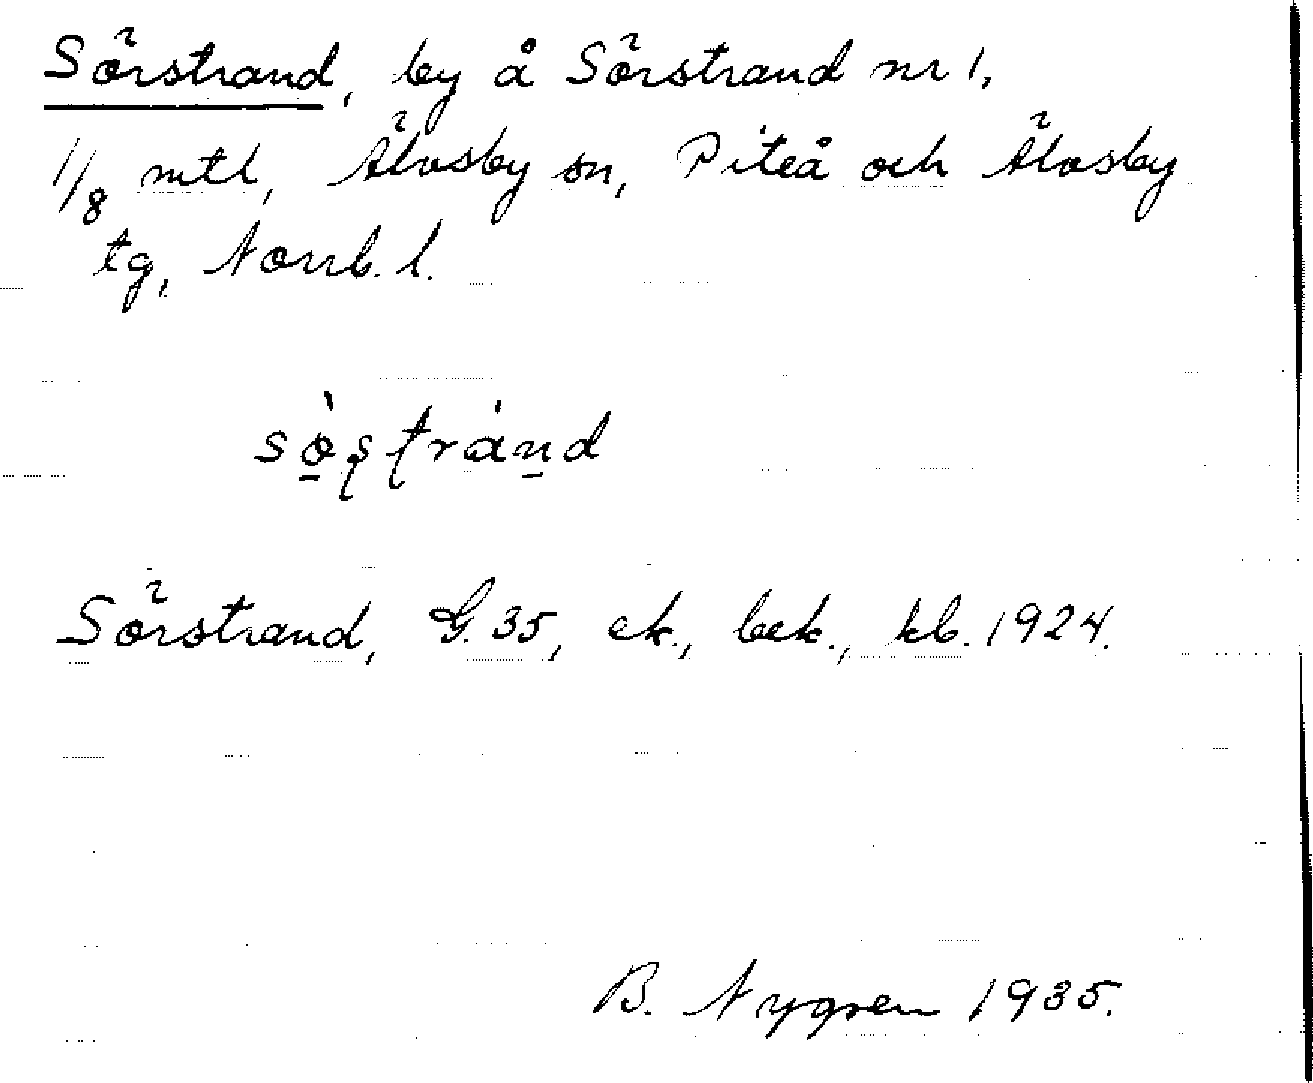 Sörstrand, by å Sörstrand nr 1,
1/8 mtl, Älvsby sn, Piteå och Älvsby
tg, Norrb. l.
sö̀ʂʈrán̠d
Sörstrand, G. 35, ek., bek., kb. 1924.
B. Nygren 1935.